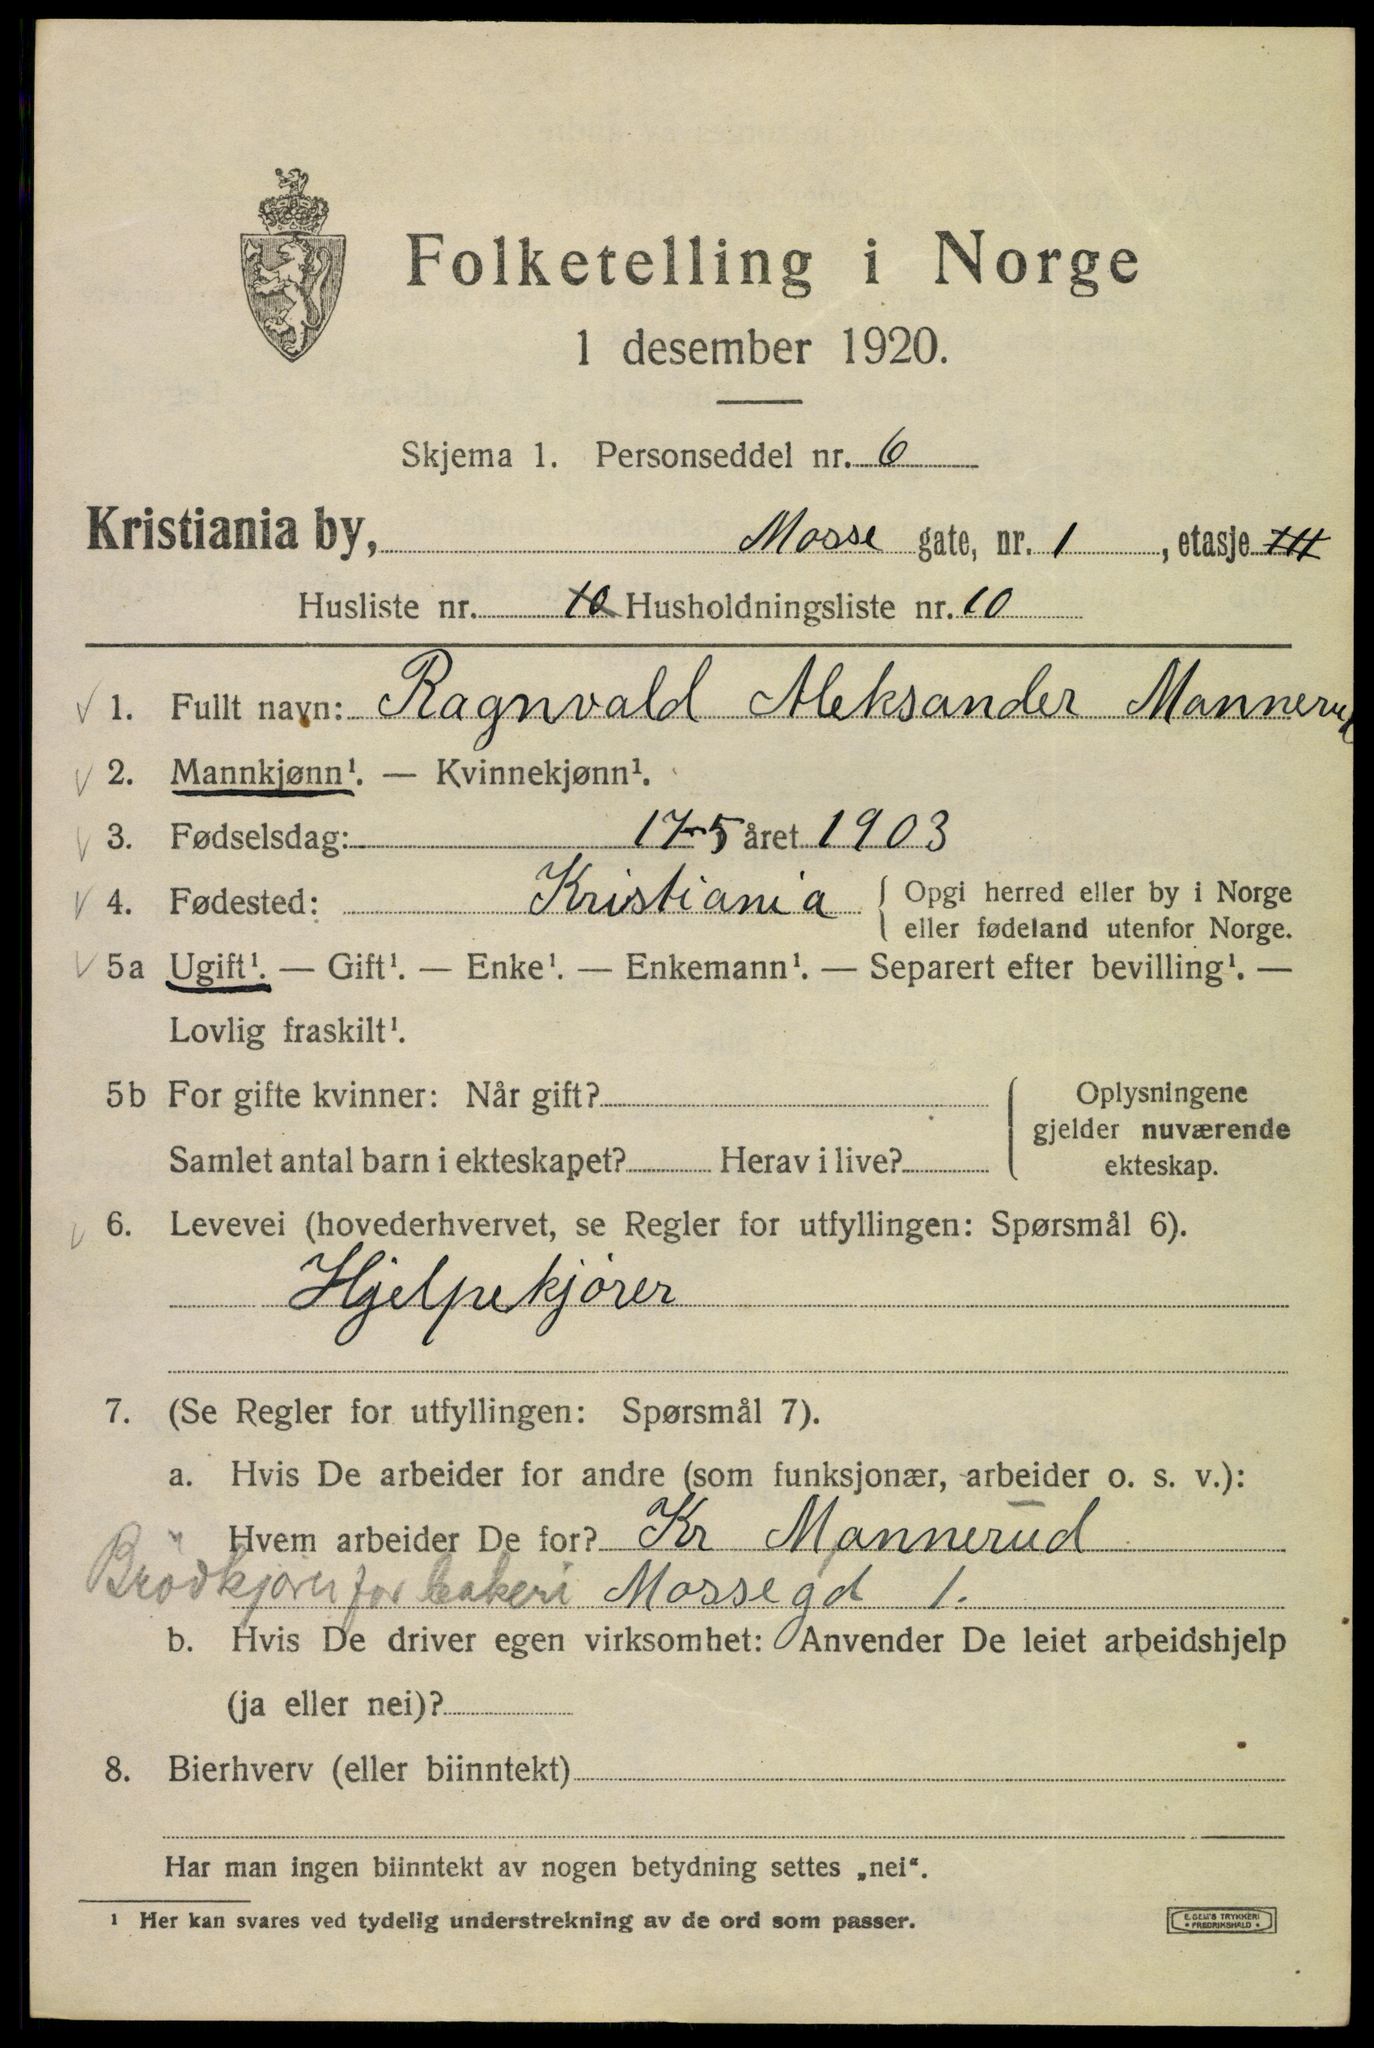 Folketelling i Norge
1 desember 1920.
Skjema 1. Personseddel nr. 6
Kristiania by, Mosse gate, nr. 1, etasje III
Husliste nr. 10 Husholdningsliste nr. 10
1. Fullt navn: Ragnvald Aleksander Mannerud
2. Mannkjønn¹. — Kvinnekjønn¹.
3. Fødselsdag: 17-5 året 1903
4. Fødested: Kristiania { Opgi herred eller by i Norge
eller fødeland utenfor Norge.
5a Ugift¹. — Gift¹. — Enke¹. — Enkemann¹. — Separert efter bevilling¹. —
Lovlig fraskilt¹.
5b For gifte kvinner: Når gift? { Oplysningene
gjelder nuværende
Samlet antal barn i ekteskapet? Herav i live? ekteskap.
6. Levevei (hovederhvervet, se Regler for utfyllingen: Spørsmål 6).
Hjelpekjörer
7. (Se Regler for utfyllingen: Spørsmål 7).
a. Hvis De arbeider for andre (som funksjonær, arbeider o. s. v.):
Hvem arbeider De for? Kr Mannerud
Brödkjører for bakeri Mossegd 1.
b. Hvis De driver egen virksomhet: Anvender De leiet arbeidshjelp
(ja eller nei)?
8. Bierhverv (eller biinntekt)
Har man ingen biinntekt av nogen betydning settes „nei“.
¹ Her kan svares ved tydelig understrekning av de ord som passer.
E. SEM'S TRYKKERI
• FREDRIKSHALD •